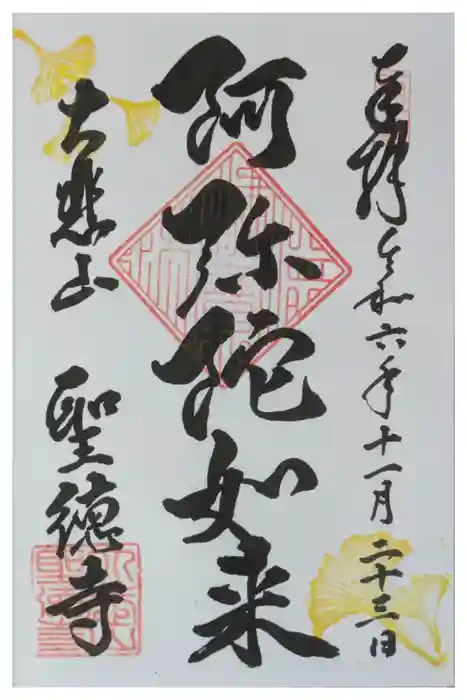 奉拝 令和六年十一月二十三日
阿弥陀如来
大悲山 聖徳寺